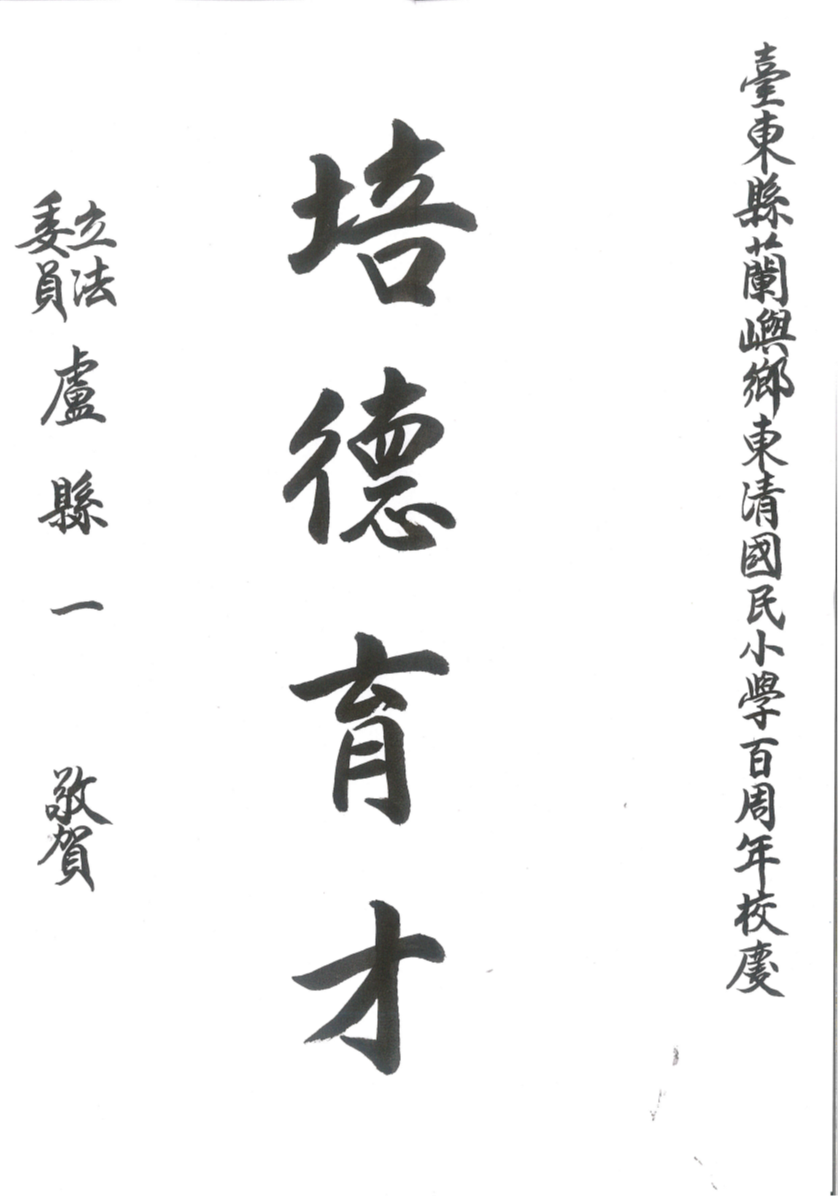 臺東縣蘭嶼鄉東清國民小學百周年校慶
培德育才
立法委員 盧縣一 敬賀